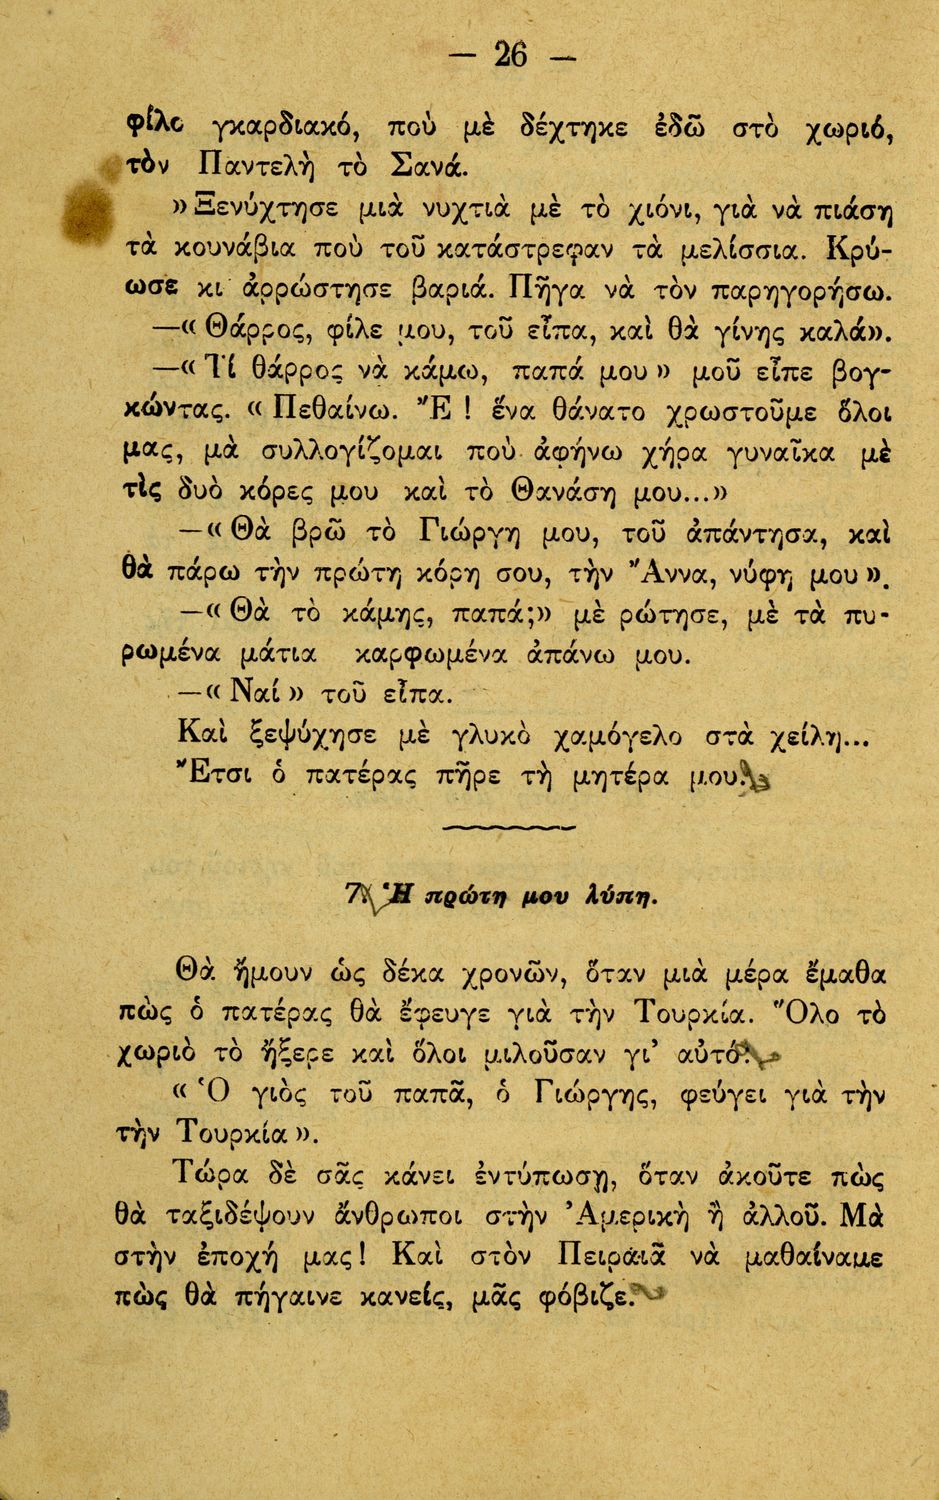 — 26 —
φίλο γκαρδιακό, ποὺ μὲ δέχτηκε ἐδῶ στὸ χωριό,
τὸν Παντελὴ τὸ Σανά.
»Ξενύχτησε μιὰ νυχτιὰ μὲ τὸ χιόνι, γιὰ νὰ πιάσῃ
τὰ κουνάβια ποὺ τοῦ κατάστρεφαν τὰ μελίσσια. Κρύ-
ωσε κι ἀρρώστησε βαριά. Πῆγα νὰ τὸν παρηγορήσω.
—« Θάρρος, φίλε μου, τοῦ εἶπα, καὶ θὰ γίνῃς καλά».
—« Τί θάρρος νὰ κάμω, παπά μου » μοῦ εἶπε βογ-
κώντας. « Πεθαίνω. Ἔ ! ἕνα θάνατο χρωστοῦμε ὅλοι
μας, μὰ συλλογίζομαι ποὺ ἀφήνω χήρα γυναῖκα μὲ
τὶς δυὸ κόρες μου καὶ τὸ Θανάση μου...»
—« Θὰ βρῶ τὸ Γιώργη μου, τοῦ ἀπάντησα, καὶ
θὰ πάρω τὴν πρώτη κόρη σου, τὴν Ἄννα, νύφη μου ».
—« Θὰ τὸ κάμῃς, παπά;» μὲ ρώτησε, μὲ τὰ πυ-
ρωμένα μάτια καρφωμένα ἀπάνω μου.
—« Ναί » τοῦ εἶπα.
Καὶ ξεψύχησε μὲ γλυκὸ χαμόγελο στὰ χείλη...
Ἔτσι ὁ πατέρας πῆρε τὴ μητέρα μου.
7. Ἡ πρώτη μου λύπη.
Θὰ ἤμουν ὡς δέκα χρονῶν, ὅταν μιὰ μέρα ἔμαθα
πὼς ὁ πατέρας θὰ ἔφευγε γιὰ τὴν Τουρκία. Ὅλο τὸ
χωριὸ τὸ ἤξερε καὶ ὅλοι μιλοῦσαν γι’ αὐτό.
« Ὁ γιὸς τοῦ παπᾶ, ὁ Γιώργης, φεύγει γιὰ τὴν
τὴν Τουρκία ».
Τώρα δὲ σᾶς κάνει ἐντύπωση, ὅταν ἀκοῦτε πὼς
θὰ ταξιδέψουν ἄνθρωποι στὴν Ἀμερικὴ ἢ ἀλλοῦ. Μὰ
στὴν ἐποχή μας! Καὶ στὸν Πειραιᾶ νὰ μαθαίναμε
πὼς θὰ πήγαινε κανείς, μᾶς φόβιζε.